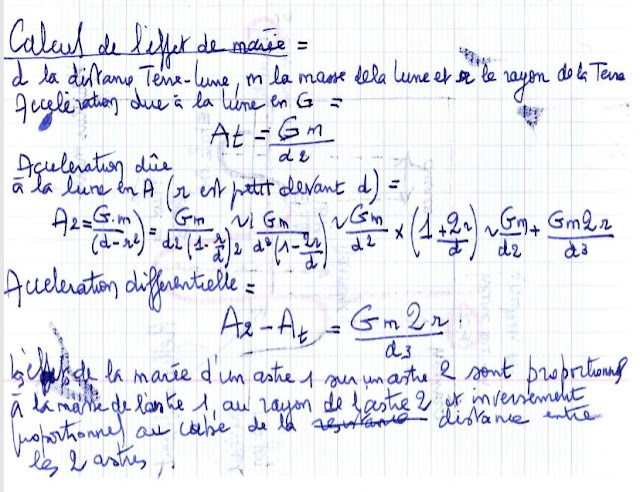 Calcul de l'effet de marée =
d la distance Terre-Lune, m la masse de la Lune et r le rayon de la Terre
Accélération due à la lune en G =
At = Gm / d2
Acceleration dûe
à la lune en A (r est petit devant d) =
A2 = G.m / (d-r²) = Gm / d2(1-r/d)2 ~ Gm / d²(1-2r/d) ~ Gm / d² × (1+2r/d) ~ Gm / d2 + Gm2r / d3
Acceleration differentielle =
A2 - At = Gm2r / d3 .
de la marée d'un astre 1 sur un astre 2 sont proportionnels
à la masse de l'astre 1, au rayon de l'astre 2 et inversement
proportionnel au cube de la distance entre
les 2 astres.